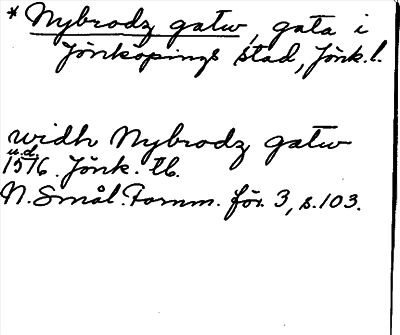 * Nybrodz gatw, gata i
Jönköpings stad, Jönk.l.
widh Nybrodz gatw
u.d.
1576. Jönk. tb.
N. Smål. Fornm. för. 3, s. 103.